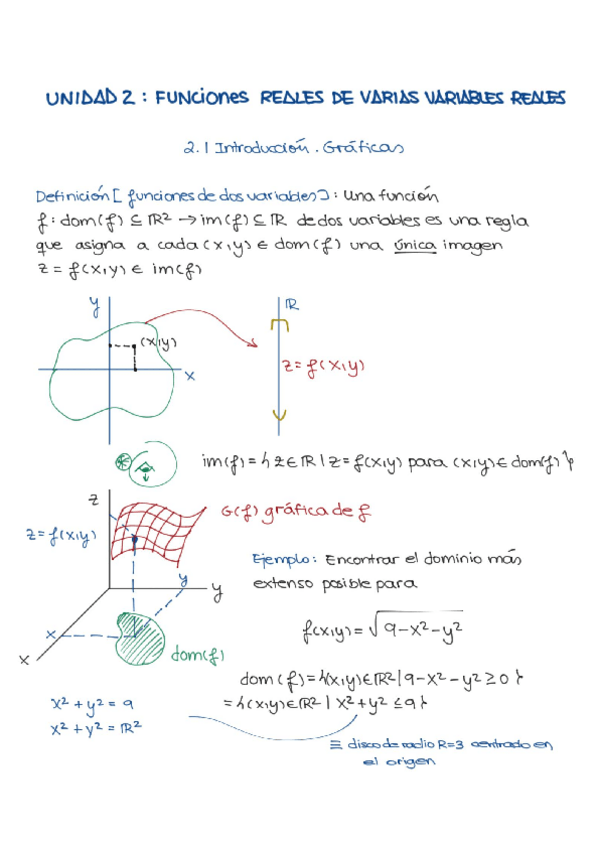 UNIDAD 2 : FUNCIONES REALES DE VARIAS VARIABLES REALES
2.1 Introducción. Gráficas
Definición [funciones de dos variables]: Una función
f: dom(f) ⊆ ℝ² → im(f) ⊆ ℝ de dos variables es una regla
que asigna a cada (x,y) ∈ dom(f) una única imagen
z = f(x,y) ∈ im(f)
y
ℝ
(x,y)
z = f(x,y)
x
im(f) = { z ∈ ℝ | z = f(x,y) para (x,y) ∈ dom(f) }
z
G(f) gráfica de f
z = f(x,y)
Ejemplo: Encontrar el dominio más
extenso posible para
y
y
f(x,y) = √9-x²-y²
x
dom(f)
x
dom(f) = {(x,y) ∈ ℝ² | 9-x²-y² ≥ 0 }
x² + y² = 9
= {(x,y) ∈ ℝ² | x² + y² ≤ 9 }
x² + y² = ℝ²
≡ disco de radio R=3 centrado en
el origen